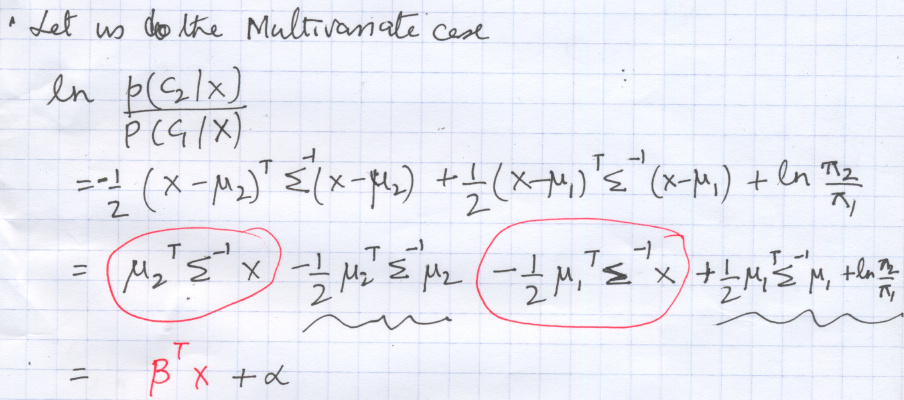 • Let us do the Multivariate case
ln p(C₂|x) / p(C₁|x)
= -1/2 (x-μ₂)ᵀ Σ⁻¹ (x-μ₂) + 1/2 (x-μ₁)ᵀ Σ⁻¹ (x-μ₁) + ln π₂/π₁
= μ₂ᵀ Σ⁻¹ x - 1/2 μ₂ᵀ Σ⁻¹ μ₂ - 1/2 μ₁ᵀ Σ⁻¹ x + 1/2 μ₁ᵀ Σ⁻¹ μ₁ + ln π₂/π₁
= βᵀ x + α